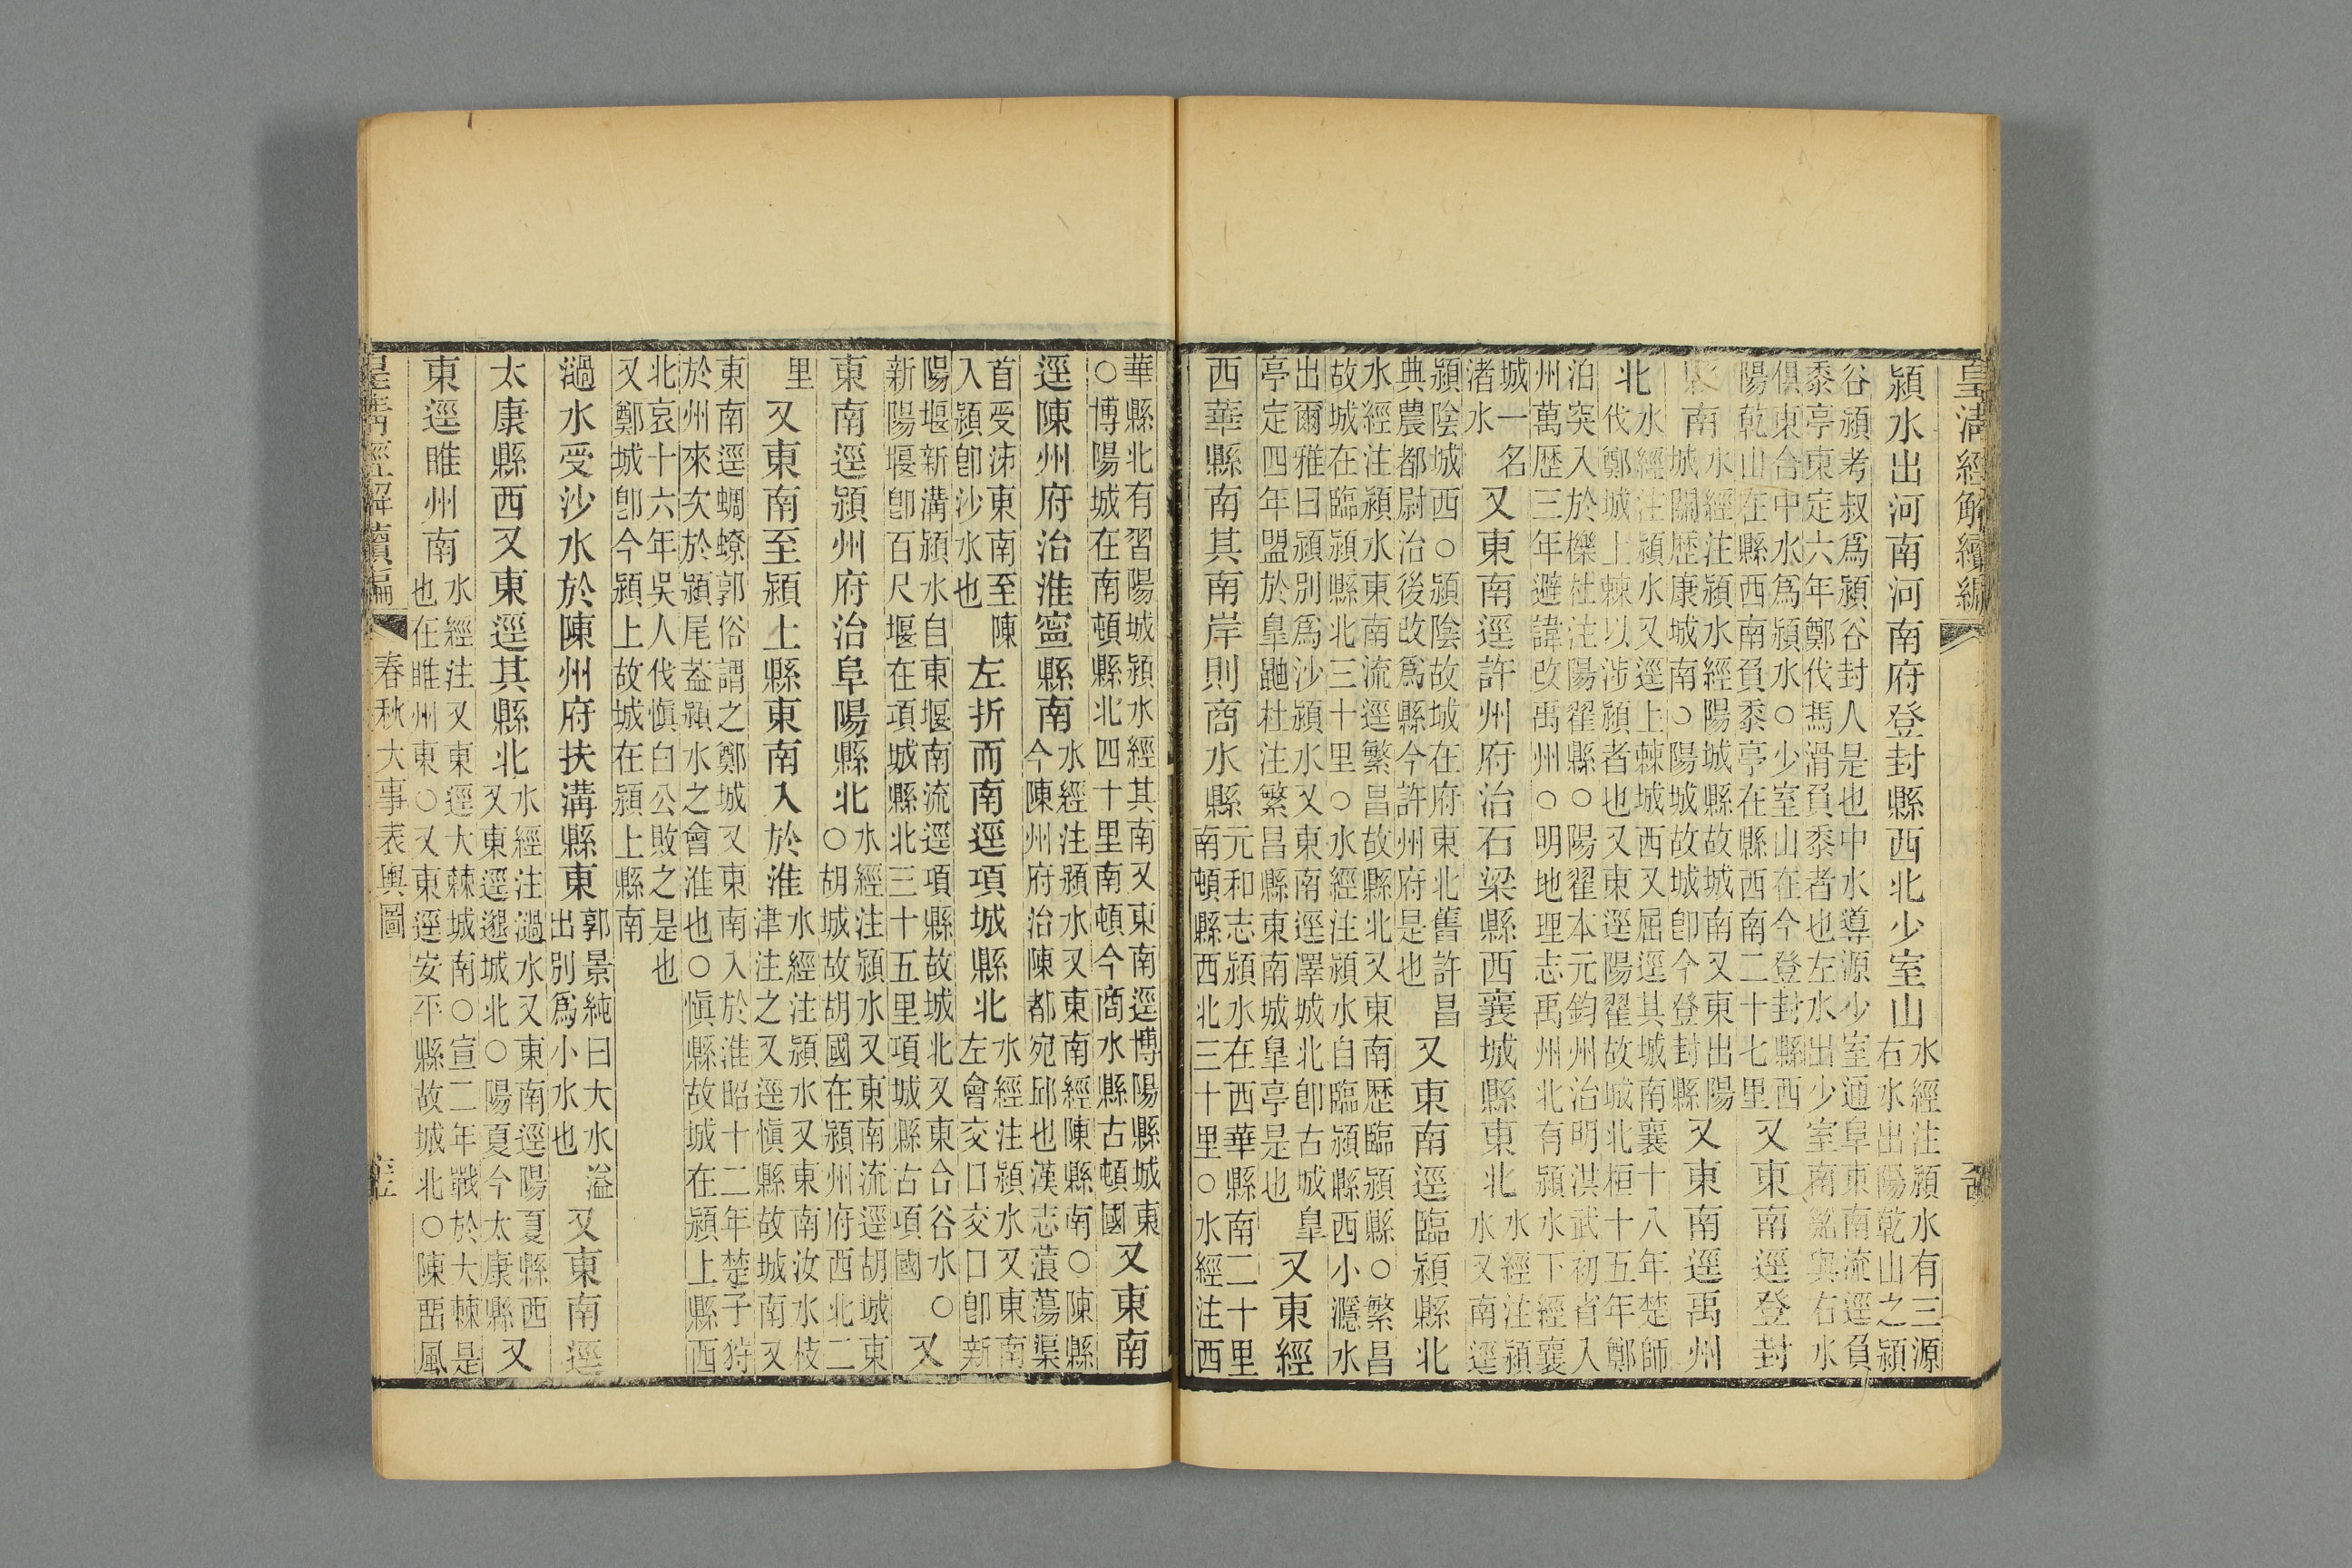 皇淸經解續編
潁水出河南河南府登封縣西北少室山
水經注潁水有三源
右水出陽乾山之潁
谷潁考叔爲潁谷封人是也中水導源少室通阜東南流逕負
黍亭東定六年鄭伐馮滑負黍者也左水出少室南谿與右水
俱東合中水爲潁水○少室山在今登封縣西
陽乾山在縣西南負黍亭在縣西南二十七里
又東南逕登封
南
水經注潁水經陽城縣故城南又東出陽
城關歷康城南○陽城故城卽今登封縣
又東南逕禹州
北
水經注潁水又逕上棘城西又屈逕其城南襄十八年楚師
伐鄭城上棘以涉潁者也又東逕陽翟故城北桓十五年鄭
泊突入於櫟杜注陽翟縣○陽翟本元鈞州治明洪武初省入
州萬歷三年避諱改禹州○明地理志禹州北有潁水下經襄
城一名
渚水
又東南逕許州府治石梁縣西襄城縣東北
水經注潁
水又南逕
潁陰城西○潁陰故城在府東北舊許昌
典農都尉治後改爲縣今許州府是也
又東南逕臨潁縣北
水經注潁水東南流逕繁昌故縣北又東南歷臨潁縣○繁昌
故城在臨潁縣北三十里○水經注潁水自臨潁縣西小㶏水
出爾雅曰潁別爲沙潁水又東南逕澤城北卽古城皐
亭定四年盟於皐鼬杜注繁昌縣東南城皐亭是也
又東經
西華縣南其南岸則商水縣
元和志潁水在西華縣南二十里
南頓縣西北三十里○水經注西
華縣北有習陽城潁水經其南又東南逕博陽縣城東
○博陽城在南頓縣北四十里南頓今商水縣古頓國
又東南
逕陳州府治淮寧縣南
水經注潁水又東南經陳縣南○陳縣
今陳州府治陳都宛邱也漢志蒗蕩渠
首受泲東南至陳
入潁卽沙水也
左折而南逕項城縣北
水經注潁水又東南
左會交口交口卽新
陽堰新溝潁水自東堰南流逕項縣故城北又東合谷水○
新陽堰卽百尺堰在項城縣北三十五里項城縣古項國
又
東南逕潁州府治阜陽縣北
水經注潁水又東南流逕胡城東
○胡城故胡國在潁州府西北二
里
又東南至潁上縣東南入於淮
水經注潁水又東南汝水枝
津注之又逕愼縣故城南又
東南逕蜩蟟郭俗謂之鄭城又東南入於淮昭十二年楚子狩
於州來次於潁尾蓋潁水之會淮也○愼縣故城在潁上縣西
北哀十六年吳人伐愼白公敗之是也
又鄭城卽今潁上故城在潁上縣南
濄水受沙水於陳州府扶溝縣東
郭景純曰大水溢
出別爲小水也
又東南逕
太康縣西又東逕其縣北
水經注濄水又東南逕陽夏縣西
又東逕邈城北○陽夏今太康縣
又
東逕睢州南
水經注又東逕大棘城南○宣二年戰於大棘是
也在睢州東○又東逕安平縣故城北○陳畱風
皇淸經解續編
春秋大事表輿圖